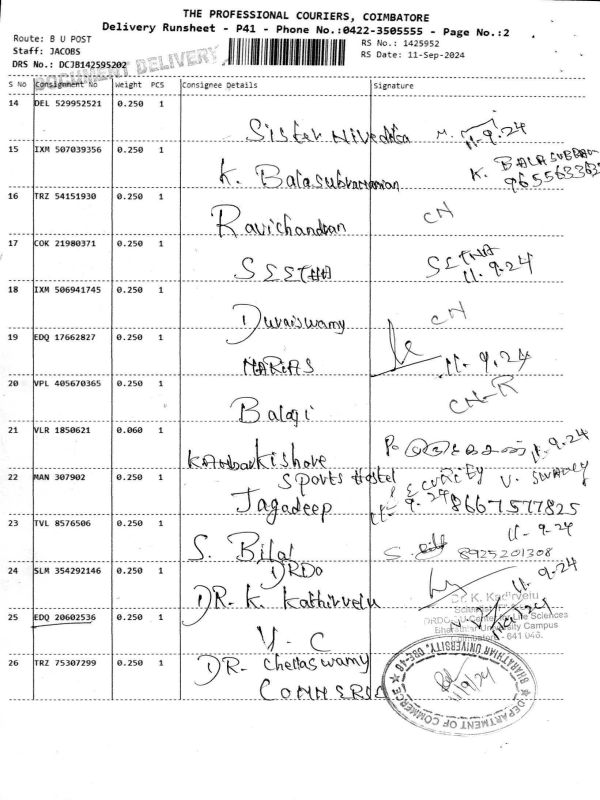 THE PROFESSIONAL COURIERS, COIMBATORE
Delivery Runsheet - P41 - Phone No.:0422-3505555 - Page No.:2
Route: B U POST
Staff: JACOBS
DRS No.: DCJB142595202
DOCUMENT DELIVERY
RS No.: 1425952
RS Date: 11-Sep-2024
S No Consignment No Weight PCS Consignee Details Signature
14 DEL 529952521 0.250 1
Sister Nivedita 11-9.24
15 IXM 507039356 0.250 1
K. Balasubramanian K. BALASUBRAM
965563363
16 TRZ 54151930 0.250 1
Ravichandran CN
17 COK 21980371 0.250 1
SEETHA SEETHA
11-9.24
18 IXM 506941745 0.250 1
Duraiswamy CN
19 EDQ 17662827 0.250 1
MARIAS 11-9.24
20 VPL 405670365 0.250 1
Balaji CN-R
21 VLR 1850621 0.060 1
Kishore 11-9.24
22 MAN 307902 0.250 1
Sports Hostel Security V.
Jagadeep 11-9.24 8667577825
23 TVL 8576506 0.250 1
S. Bilal 11-9-24
8925201308
24 SLM 354292146 0.250 1
DRDO
DR. K. Kathirvelu 11-9-24
Dr. K. Kadirvelu
25 EDQ 20602536 0.250 1
V-C
DRDO Life Sciences
Bharathiar University Campus
Coimbatore - 641 046.
26 TRZ 75307299 0.250 1
DR- Chellaswamy
COMMERCE
DEPARTMENT OF COMMERCE
BHARATHIAR UNIVERSITY, CBE-46
11/9/24